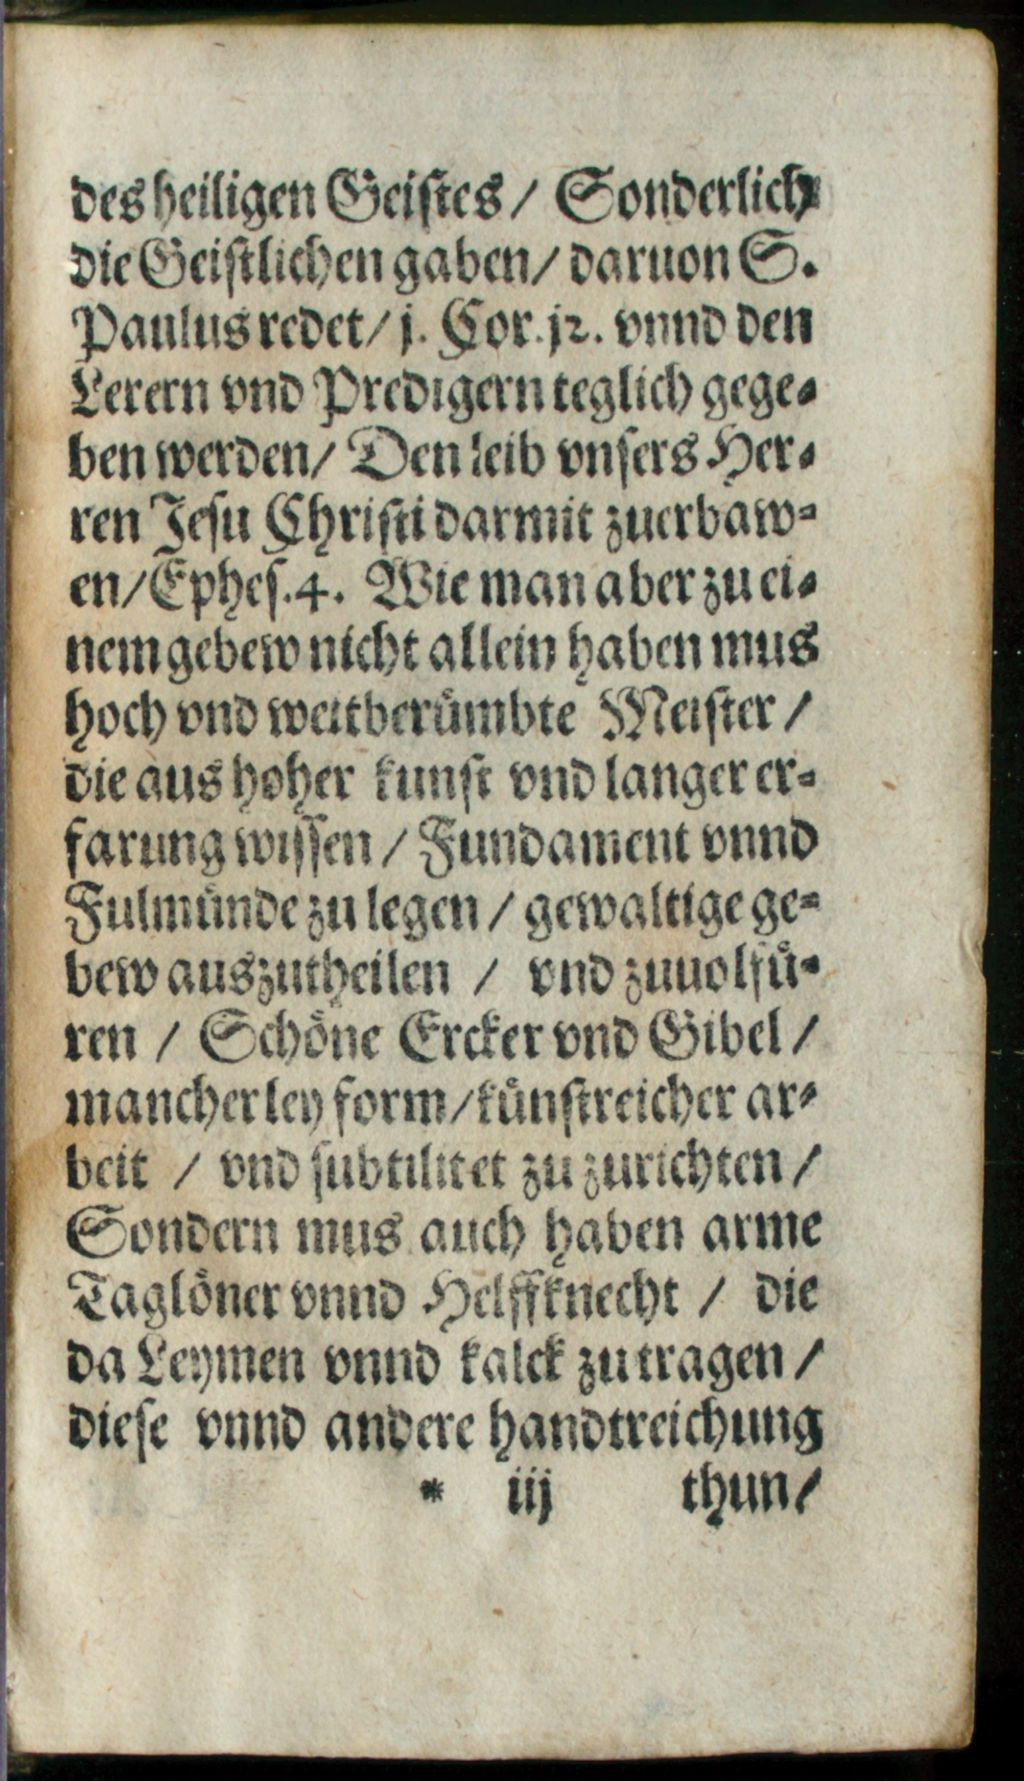 des heiligen Geistes / Sonderlich
die Geistlichen gaben / daruon S.
Paulus redet / j. Cor. j2. vnnd den
Lerern vnd Predigern teglich gege⸗
ben werden / Den leib vnsers Her⸗
ren Jesu Christi darmit zuerbaw⸗
en / Ephes. 4. Wie man aber zu ei⸗
nem gebew nicht allein haben mus
hoch vnd weitberuͤmbte Meister /
die aus hoher kunst vnd langer er⸗
farung wissen / Fundament vnnd
Fulmuͤnde zu legen / gewaltige ge⸗
bew auszutheilen / vnd zuuolfuͤ⸗
ren / Schoͤne Ercker vnd Gibel /
mancherley form / kuͤnstreicher ar⸗
beit / vnd subtilitet zu zurichten /
Sondern mus auch haben arme
Tagloͤner vnnd Helffknecht / die
da Leymen vnnd kalck zu tragen /
diese vnnd andere handtreichung
* iij thun /